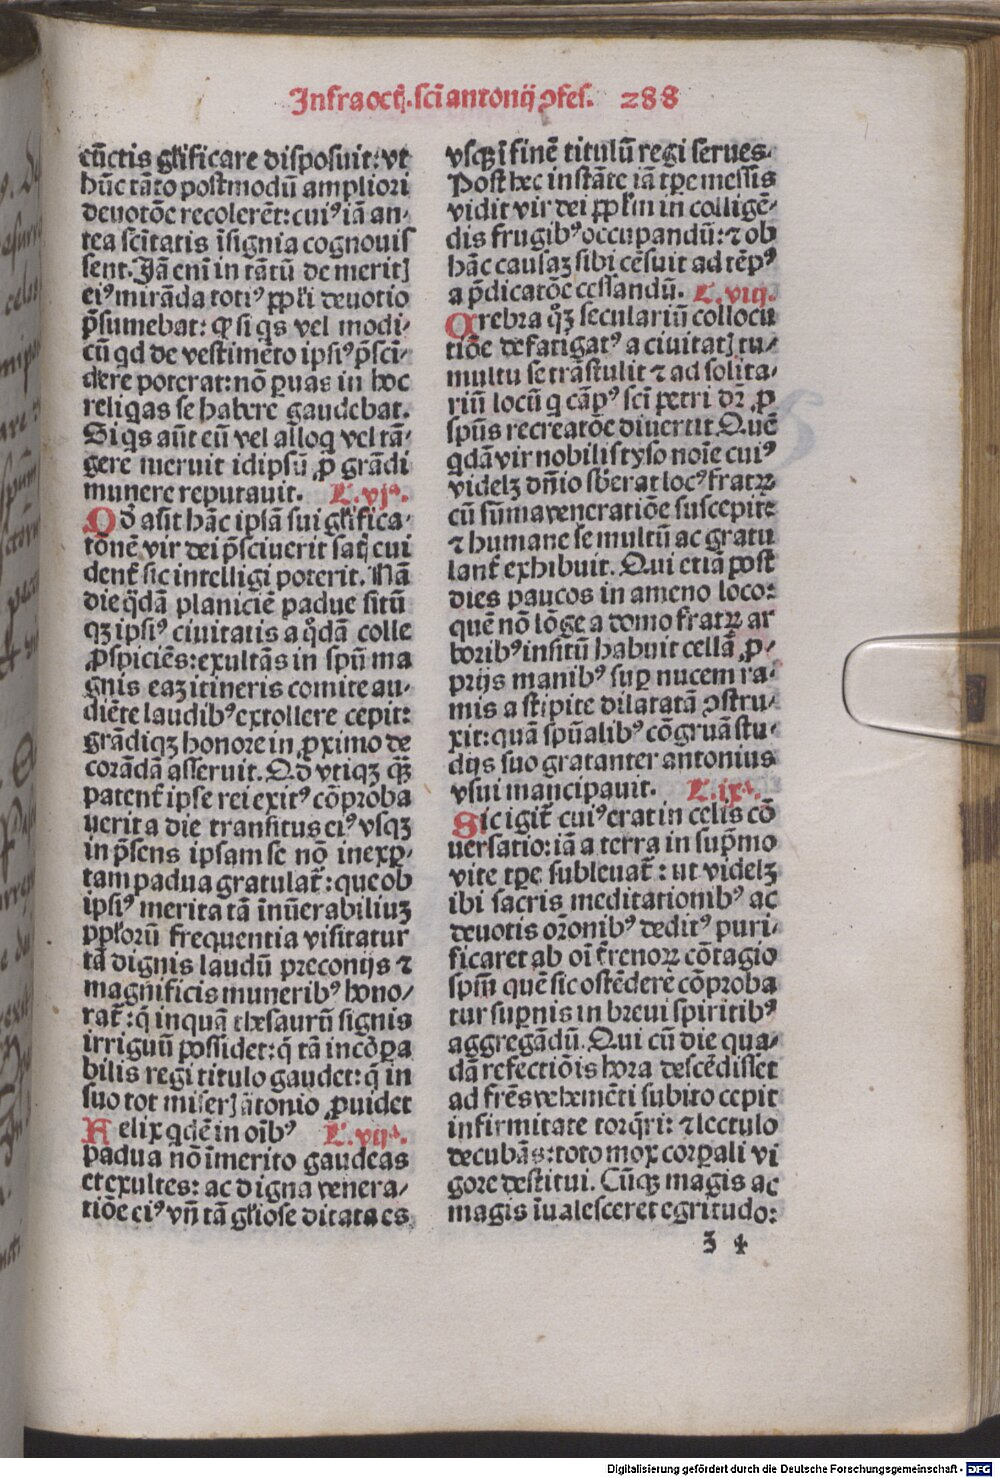 Infra octꝭ. sci antonij ꝯfes. 288
cūctis gl̄ificare disposuit: vt
hūc tāto postmodū ampliori
deuotōe recolerēt: cuiꝰ iā an-
tea scītatis īsignia cognouis
sent. Jā eni in tātū de meritꝭ
eiꝰ mirāda totiꝰ ppl̄i deuotio
p̄sumebat: ꝙ si qs vel modi-
cū qd de vestimēto ipsiꝰ p̄sci-
dere poterat: nō puas in hoc
religas se habere gaudebat.
Si qs aūt eū vel alloq vel tā-
gere meruit idipsū ꝓ grādi
munere reputauit. L. vjᵃ.
Qd̓ asit hāc ipsā sui gl̄ifica-
tōnē vir dei p̄sciuerit satꝭ cui
dent̄ sic intelligi poterit. Nā
die q̄dā planiciē padue sitū
qꝫ ipsiꝰ ciuitatis a q̊dā colle
ꝓspiciēs: exultās in spū ma
gnis eaꝫ itineris comite au-
diēte laudibꝰ extollere cepit:
grādiqꝫ honore in ꝓximo de
corādā asseruit. Qd̓ vtiqꝫ qꝫ̄
patent̄ ipse rei exitꝰ cōproba
uerit a die transitus eiꝰ vsqꝫ
in p̄sens ipsam se nō inexp-
tam padua gratulat̄: que ob
ipsiꝰ merita tā inūerabiliuꝫ
ppl̄orū frequentia visitatur
tā dignis laudū preconijs ⁊
magnificis muneribꝰ hono-
rat̄: q̄ inquā thesaurū signis
irriguū possidet: q̄ tā incōpa
bilis regi titulo gaudet: q̄ in
suo tot miserꝭ ātonio ꝓuidet
Felix qdē in oībꝰ L. vijᵃ.
padua nō īmerito gaudeas
et exultes: ac digna venera-
tiōe eiꝰ vn̄ tā gl̄iose ditata es
vsqꝫ ī finē titulū regi serues.
Post hec instāte iā tpe messis
vidit vir dei ppl̄m in colligē-
dis frugibꝰ occupandū: ⁊ ob
hāc causaꝫ sibi cēsuit ad tēpꝰ
a p̄dicatōe cessandū. L. viijᵃ.
Crebra q̊ꝫ seculariū collocu
tiōe defatigatꝰ a ciuitatꝭ tu-
multu se trāstulit ⁊ ad solita-
riū locū q cāpꝰ sci petri dr̄ ꝓ
spūs recreatōe diuertit. Quē
qdā vir nobilis tyso noīe cuiꝰ
videlꝫ dn̄io sb̓erat locꝰ fratꝝ
cū sūma veneratiōe suscepit
⁊ humane se multū ac gratu
lant̄ exhibuit. Qui etiā post
dies paucos in ameno loco:
quē nō lōge a domo fratꝝ ar
boribꝰ insitū habuit cellā ꝓ-
prijs manibꝰ sup nucem ra-
mis a stipite dilatatā ꝯstru-
xit: quā spūalibꝰ cōgruā stu-
dijs suo gratanter antonius
vsui mancipauit. L. ixᵃ.
Sic igit̄ cuiꝰ erat in celis cō
uersatio: iā a terra in supmo
vite tpe subleuat̄: ut videlꝫ
ibi sacris meditationibꝰ ac
deuotis orōnibꝰ deditꝰ puri-
ficaret ab oī t̄renoꝝ cōtagio
spm̄ quē sic ostēdere cōproba
tur supnis in breui spiritibꝰ
aggregādū. Qui cū die qua-
dā refectiōis hora descēdisset
ad frēs vehemēti subito cepit
infirmitate torq̄ri: ⁊ lectulo
decubās: toto mox corpali vi
gore destitui. Cūqꝫ magis ac
magis īualesceret egritudo:
ʒ 4
Digitalisierung gefördert durch die Deutsche Forschungsgemeinschaft - DFG